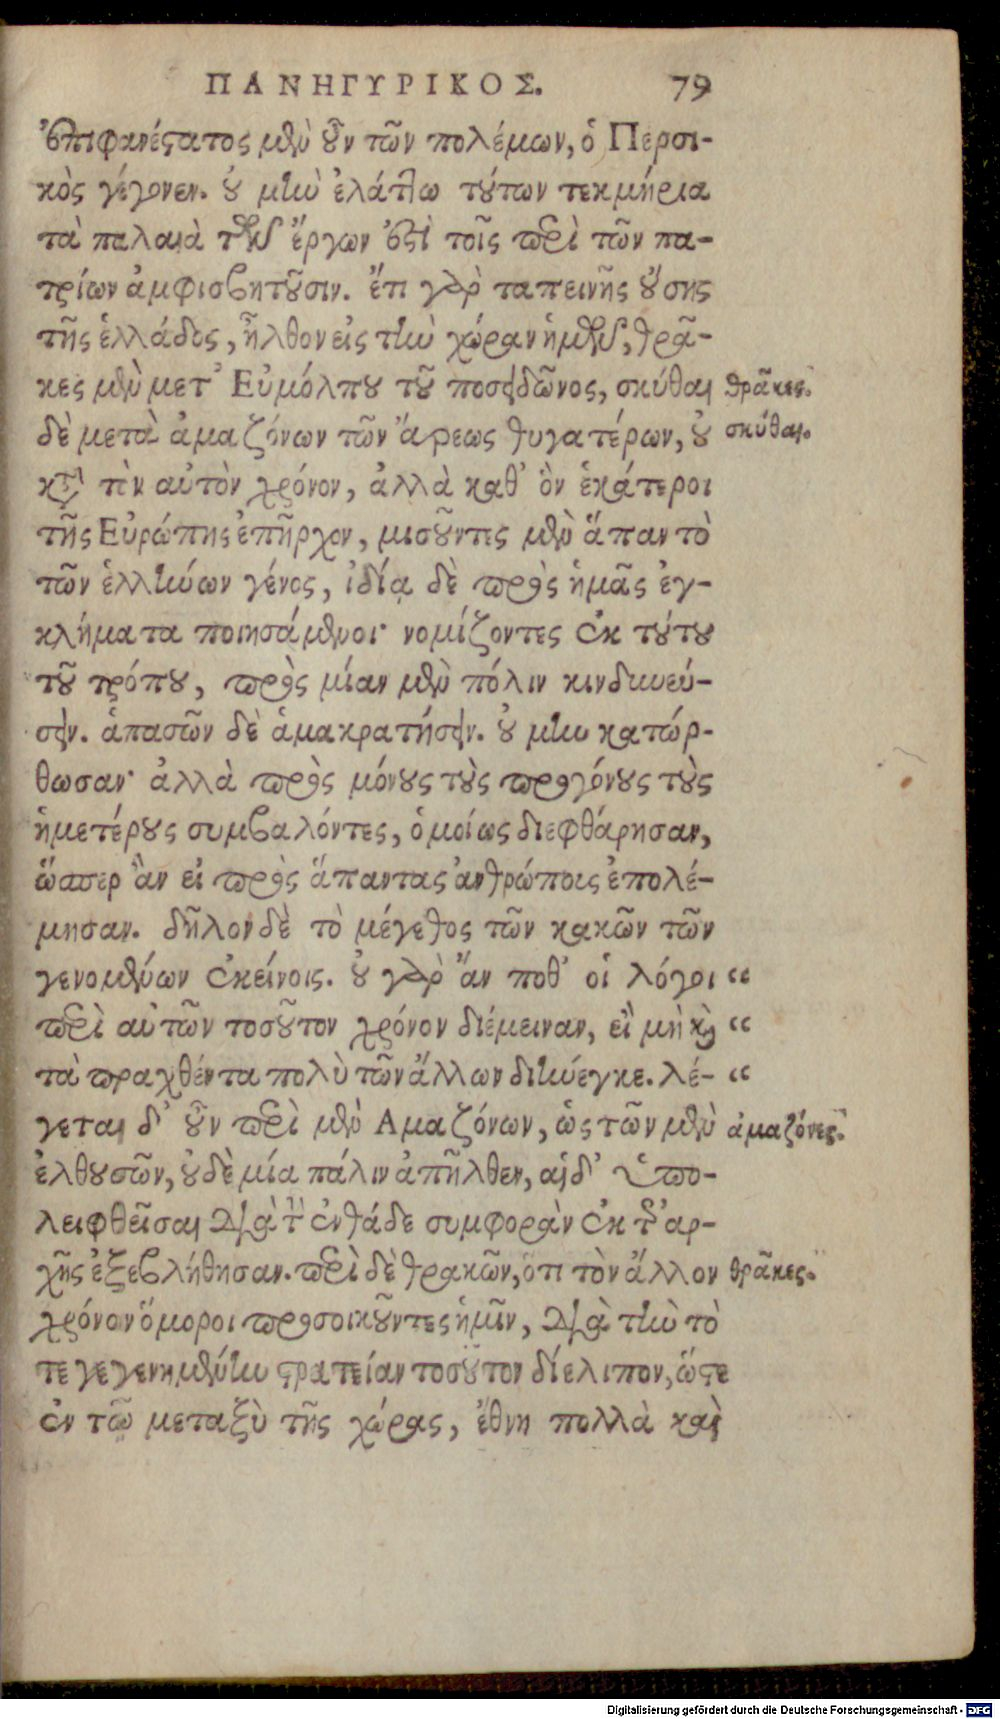 ΠΑΝΗΓΥΡΙΚΟΣ. 79
ἐπιφανέστατος μὲν οὖν τῶν πολέμων, ὁ Περσι-
κὸς γέγονεν. οὐ μὴν ἐλάττω τούτων τεκμήρια
τὰ παλαιὰ τῶν ἔργων ἐστὶ τοῖς περὶ τῶν πα-
τρίων ἀμφισβητοῦσιν. ἔτι γὰρ ταπεινῆς οὔσης
τῆς ἑλλάδος, ἦλθον εἰς τὴν χώραν ἡμῶν, θρᾶ-
κες μὲν μετ' Εὐμόλπου τοῦ ποσειδῶνος, σκύθαι θρᾶκες.
δὲ μετὰ ἀμαζόνων τῶν ἄρεως θυγατέρων, οὐ σκύθαι.
κατὰ τὸν αὐτὸν χρόνον, ἀλλὰ καθ' ὃν ἑκάτεροι
τῆς Εὐρώπης ἐπῆρχον, μισοῦντες μὲν ἅπαν τὸ
τῶν ἑλλήνων γένος, ἰδίᾳ δὲ πρὸς ἡμᾶς ἐγ-
κλήματα ποιησάμενοι· νομίζοντες ἐκ τούτου
τοῦ τρόπου, πρὸς μίαν μὲν πόλιν κινδυνεύ-
σειν. ἁπασῶν δὲ ἁμακρατήσειν. οὐ μὴν κατώρ-
θωσαν· ἀλλὰ πρὸς μόνους τοὺς προγόνους τοὺς
ἡμετέρους συμβαλόντες, ὁμοίως διεφθάρησαν,
ὥσπερ ἂν εἰ πρὸς ἅπαντας ἀνθρώποις ἐπολέ-
μησαν. δῆλον δὲ τὸ μέγεθος τῶν κακῶν τῶν
γενομένων ἐκείνοις. οὐ γὰρ ἄν ποθ' οἱ λόγοι “
περὶ αὐτῶν τοσοῦτον χρόνον διέμειναν, εἰ μὴ καὶ “
τὰ πραχθέντα πολὺ τῶν ἄλλων διήνεγκε. λέ- “
γεται δ' οὖν περὶ μὲν Αμαζόνων, ὡς τῶν μὲν ἀμαζόνες.
ἐλθουσῶν, οὐδὲ μία πάλιν ἀπῆλθεν, αἱ δ' ὑπο-
λειφθεῖσαι διὰ τὴν ἐνθάδε συμφορὰν ἐκ τῆς ἀρ-
χῆς ἐξεβλήθησαν. περὶ δὲ θρακῶν, ὅτι τὸν ἄλλον θρᾶκες.
χρόνον ὅμοροι προσοικοῦντες ἡμῖν, διὰ τὴν τό
τε γεγενημένην στρατείαν τοσοῦτον διέλιπον, ὥστε
ἐν τῷ μεταξὺ τῆς χώρας, ἔθνη πολλὰ καὶ
Digitalisierung gefördert durch die Deutsche Forschungsgemeinschaft - DFG